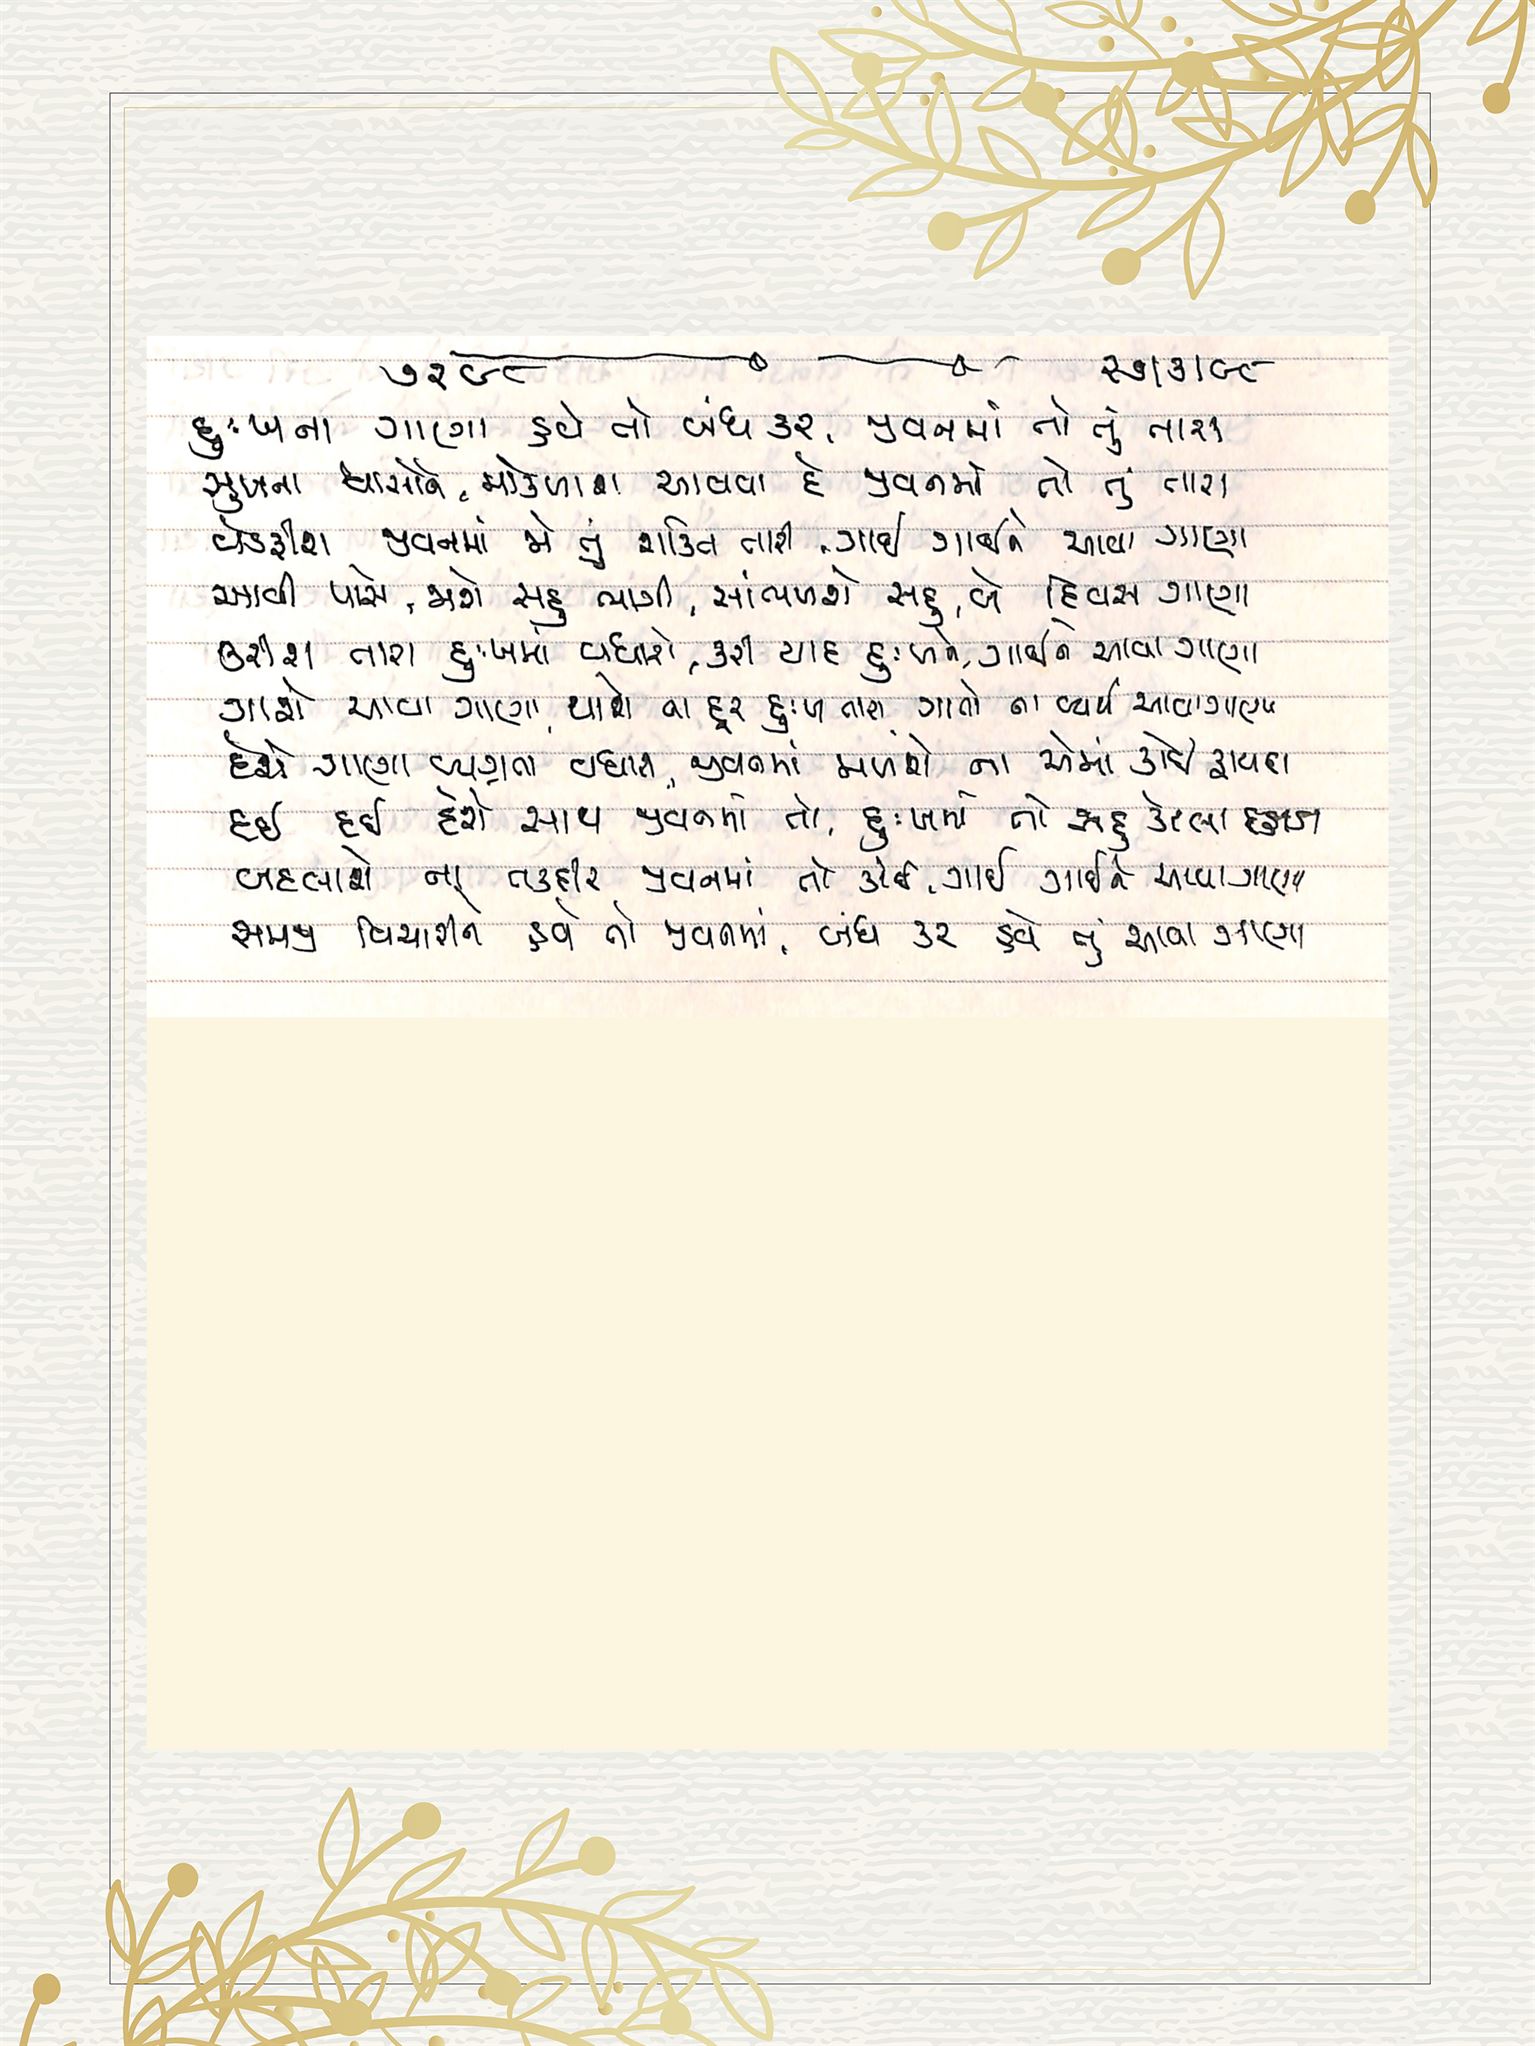 ૭૨૯૮ ૨૭।૩।૯૮
દુઃખના ગાણા હવે તો બંધ કર, જીવનમાં તો તું તારા
સુખના શ્વાસોને, મોકળાશ આપવા દે જીવનમાં તો તું તારા
વેડફીશ જીવનમાં જો તું શક્તિ તારી, ગાઈ ગાઈને આવા ગાણા
આવી પાસે, જાશે સહુ ભાગી, સાંભળશે સહુ, બે દિવસ ગાણા
કરીશ તારા દુઃખમાં વધારો, કરી યાદ દુઃખને, ગાઈને આવા ગાણા
ગાશે આવા ગાણા, થાશે ના દૂર દુઃખ તારા, ગાતો ના વ્યર્થ આવા ગાણા
દેશે ગાણા વ્યગ્રતા વધારી, જીવનમાં મળશે ના એમાં કોઈ ફાયદા
દઈ દઈ દેશે સાથ જીવનમાં તો, દુઃખમાં તો સહુ કેટલા
બદલાશે ના તકદીર જીવનમાં તો કોઈ, ગાઈ ગાઈને આવા ગાણા
સમજી વિચારીને હવે તો જીવનમાં, બંધ કર હવે તું આવા ગાણા